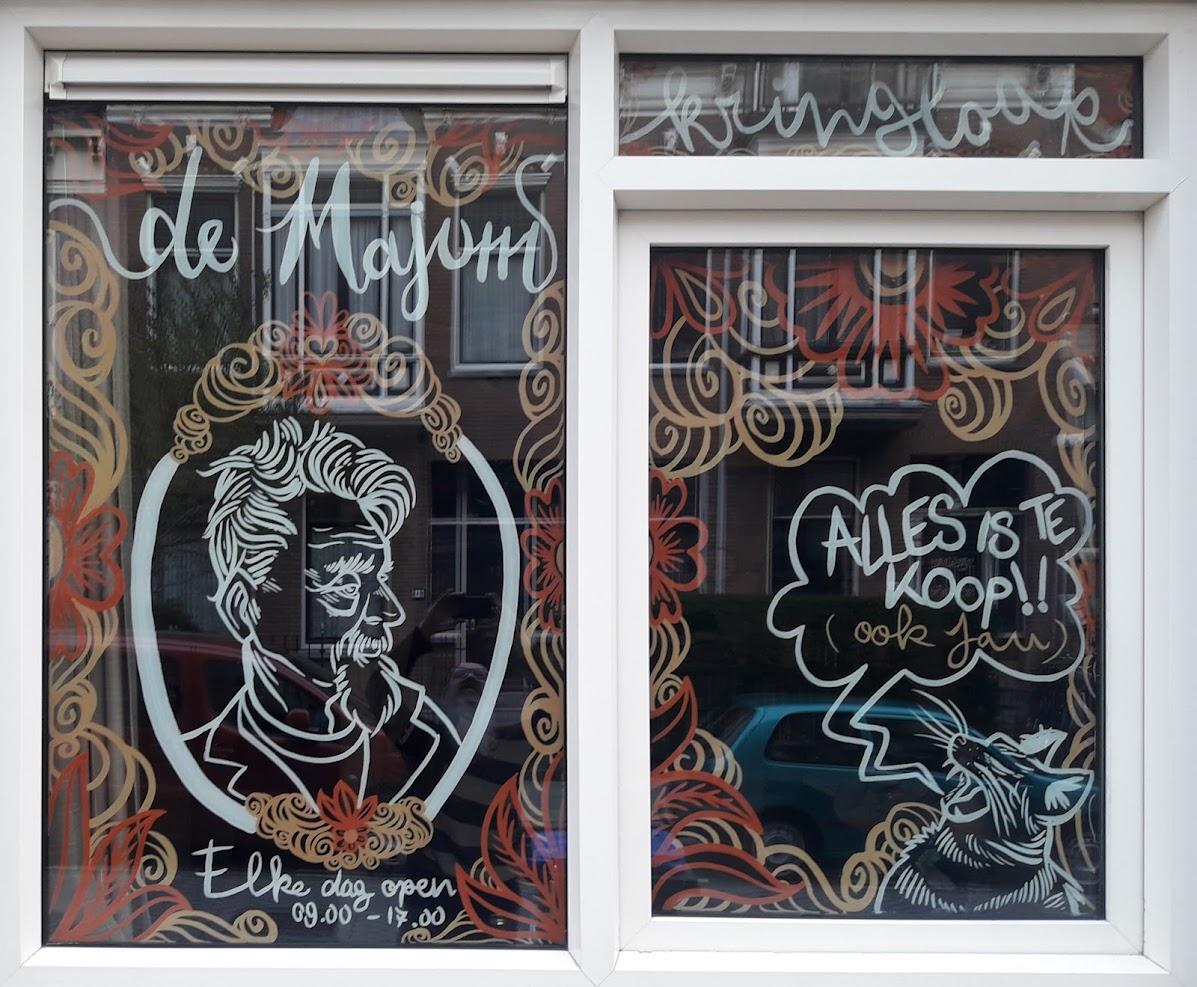 de Majoms
kringloop
ALLES IS TE
KOOP!!
(ook Jan)
Elke dag open
09.00 - 17.00